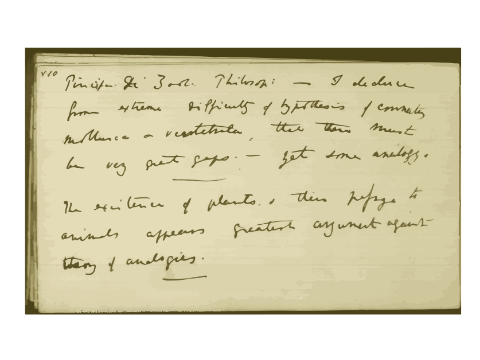 110
Principes de Zool. Philosop: — I deduce
from extreme difficulty of hypothesis of connecting
mollusca & vertebrata, that there must
be very great gaps. — yet some analogy.
The existence of plants, & their passage to
animals appears greatest argument against
theory of analogies.